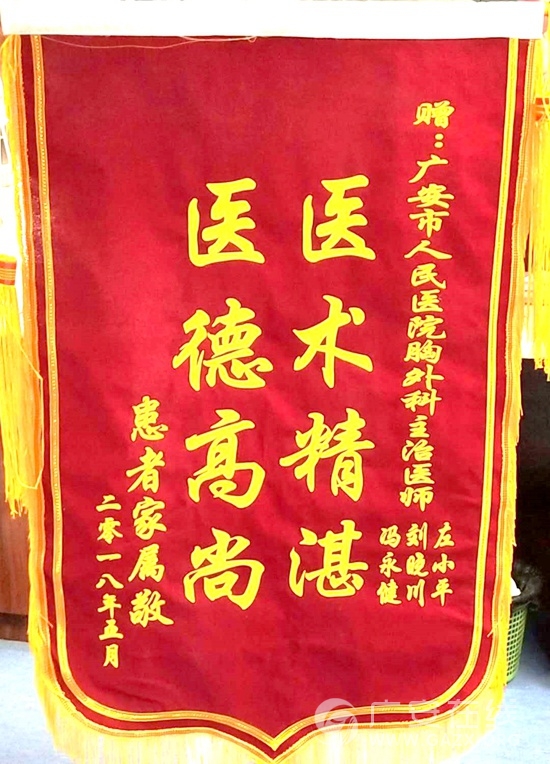 赠：广安市人民医院胸外科主治医师
左小平
刘晓川
冯永健
医术精湛
医德高尚
患者家属敬
二零一八年五月
广安在